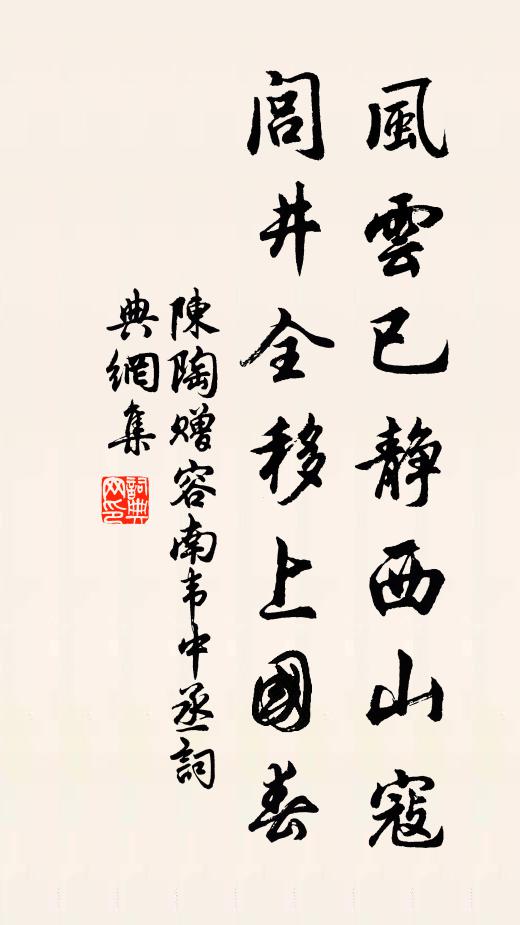 風雲已静西山寇
閭井全移上國春
陳陶赠容南韦中丞詞
典網集
詞典
网印